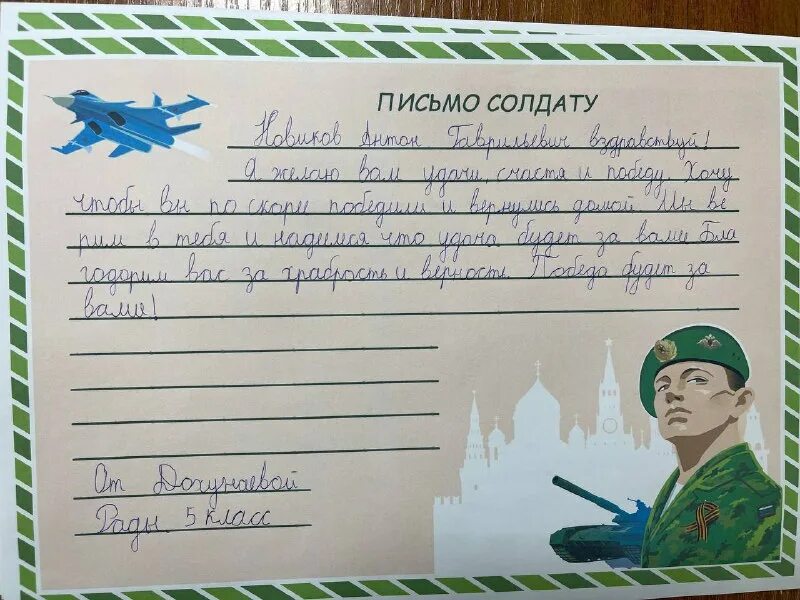 ПИСЬМО СОЛДАТУ
Новиков Антон Гаврильевич вздравствуй!
Я желаю вам удачи, счастя и победу. Хочу
чтобы вы по скорее победили и вернулись домой. Мы ве
рим в тебя и надиемся что удача будет за вами Бла
годорим вас за храбрость и верность. Победа будет за
вами!
От Дохунаевой
Рады. 5 класс